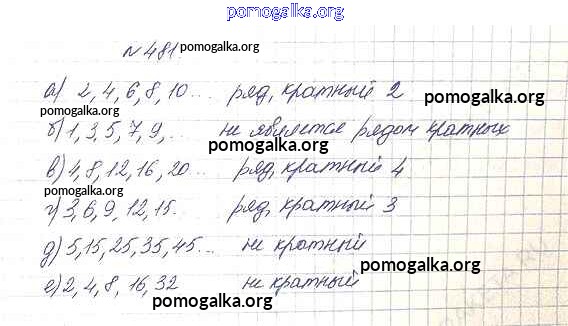 pomogalka.org
№ 481. pomogalka.org
а) 2, 4, 6, 8, 10... ряд, кратный 2
pomogalka.org
pomogalka.org
б) 1, 3, 5, 7, 9, .. не является рядом кратных
в) 4, 8, 12, 16, 20 ... ряд, кратный 4
pomogalka.org
г) 3, 6, 9, 12, 15.. ряд, кратный 3
д) 5, 15, 25, 35, 45... не кратный
pomogalka.org
е) 2, 4, 8, 16, 32 не кратный
pomogalka.org